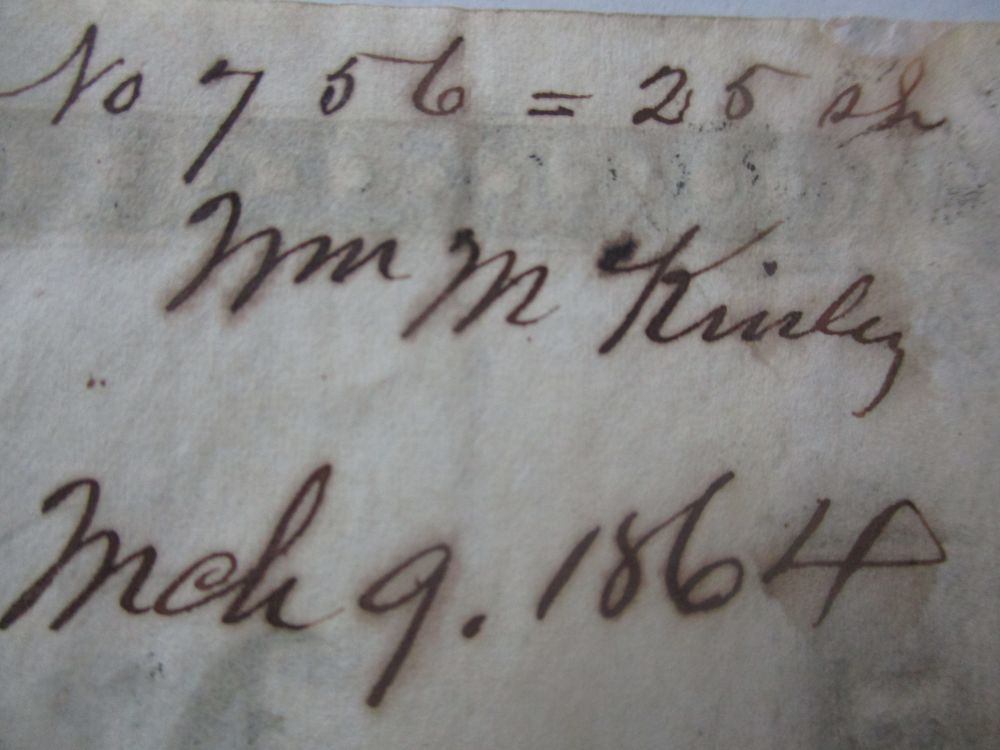 No 756 = 25 sh
Wm McKinley
Mch 9. 1864